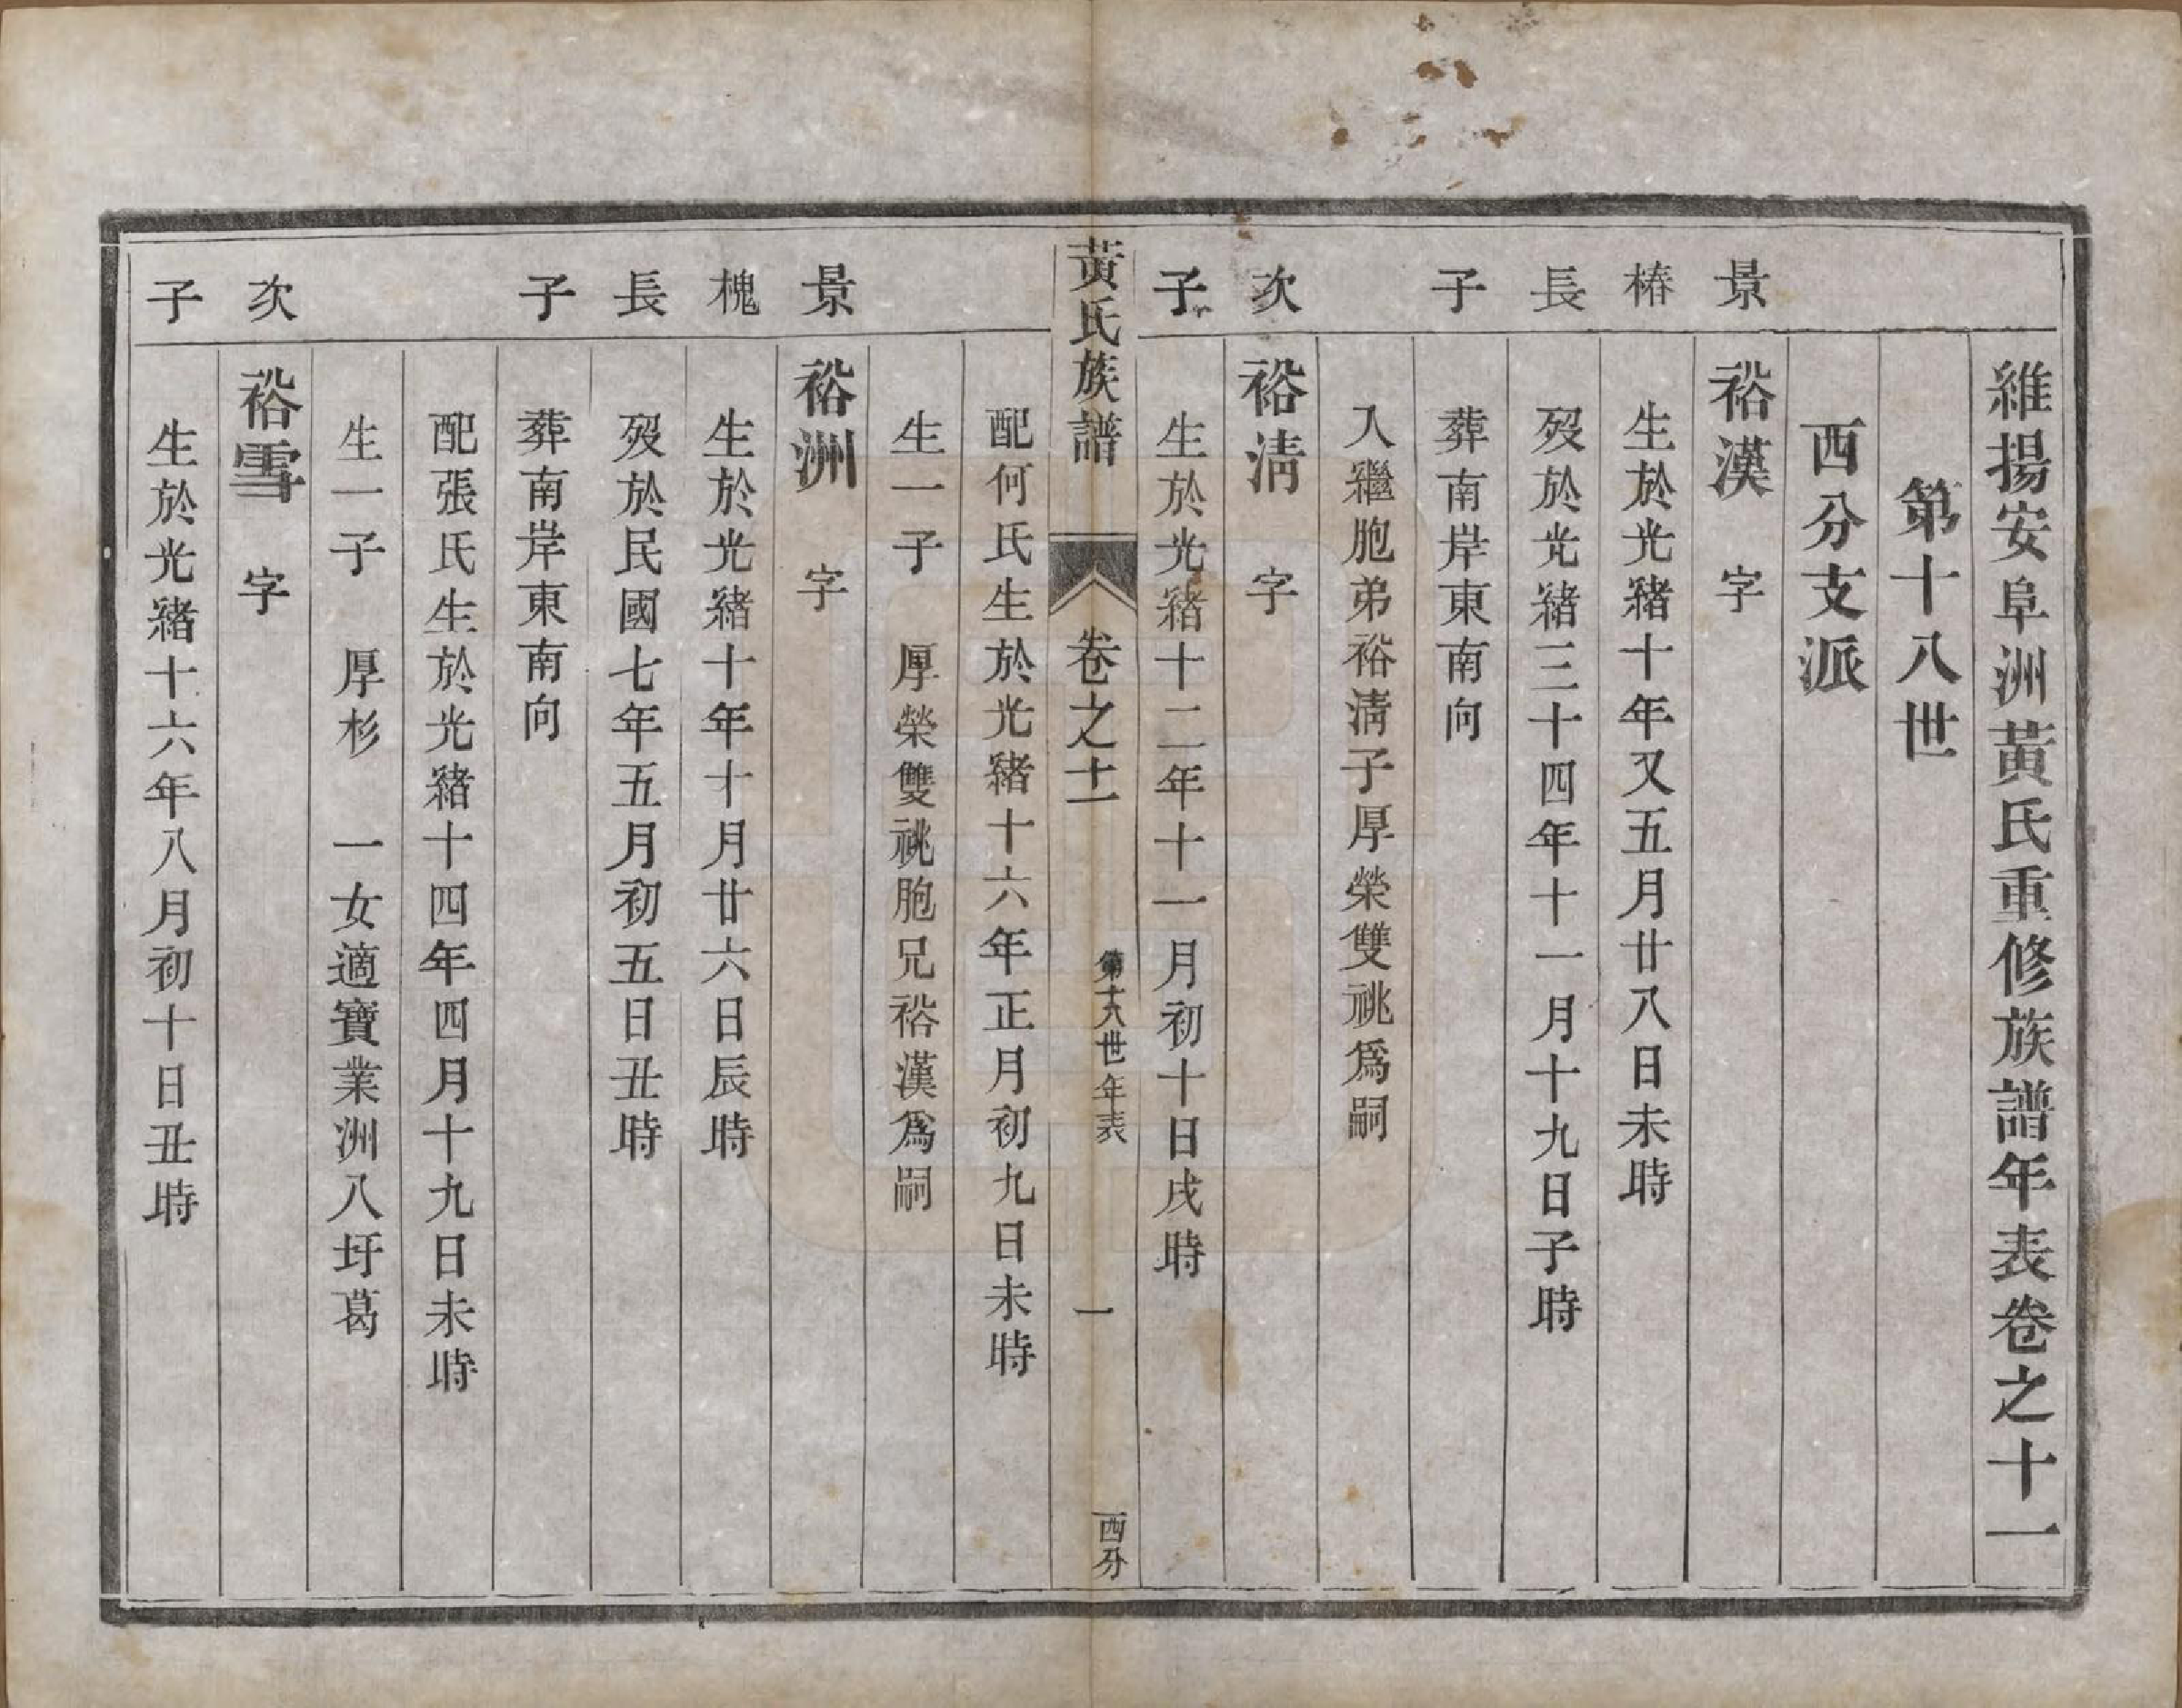 維揚安阜洲黃氏重修族譜年表卷之十一
第十八世
西分支派
景 裕漢 字
椿 生於光緒十年又五月廿八日未時
長 歿於光緒三十四年十一月十九日子時
子 葬南岸東南向
入繼胞弟裕淸子厚榮雙祧爲嗣
次 裕淸 字
子 生於光緒十二年十一月初十日戌時
黃氏族譜 卷之十一 第十八世年表 一 西分
配何氏生於光緒十六年正月初九日未時
生一子 厚榮雙祧胞兄裕漢爲嗣
景 裕洲 字
槐 生於光緒十年十月廿六日辰時
長 歿於民國七年五月初五日丑時
子 葬南岸東南向
配張氏生於光緒十四年四月十九日未時
生一子 厚杉 一女適寶業洲八圩葛
次 裕雪 字
子 生於光緒十六年八月初十日丑時